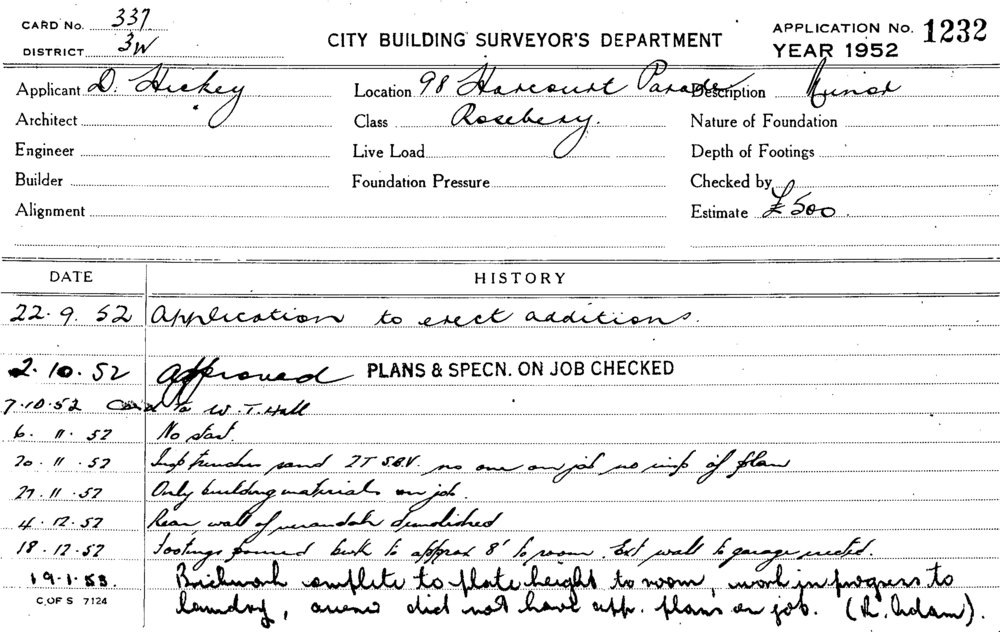 CARD No. 337
DISTRICT 3W
CITY BUILDING SURVEYOR'S DEPARTMENT
APPLICATION No. 1232
YEAR 1952
Applicant D. Hickey Location 98 Harcourt Parade Description Minor
Architect Class Rosebery. Nature of Foundation
Engineer Live Load Depth of Footings
Builder Foundation Pressure Checked by
Alignment Estimate £500.
DATE HISTORY
22.9.52 Application to erect additions.
2.10.52 Approved PLANS & SPECN. ON JOB CHECKED
7.10.52 Card to W.T. Hall
6.11.52 No start.
20.11.52 Insp trenches sand 2T S.B.V. no one on job no insp of plan
27.11.52 Only building materials on job.
4.12.52 Rear wall of verandah demolished
18.12.52 Footings poured bwk to approx 8' to room. Ext wall to garage erected.
19.1.53. Brickwork complete to plate height to room, work in progress to
laundry, owner did not have app. plans on job. (R. Adam).
C OF S 7124